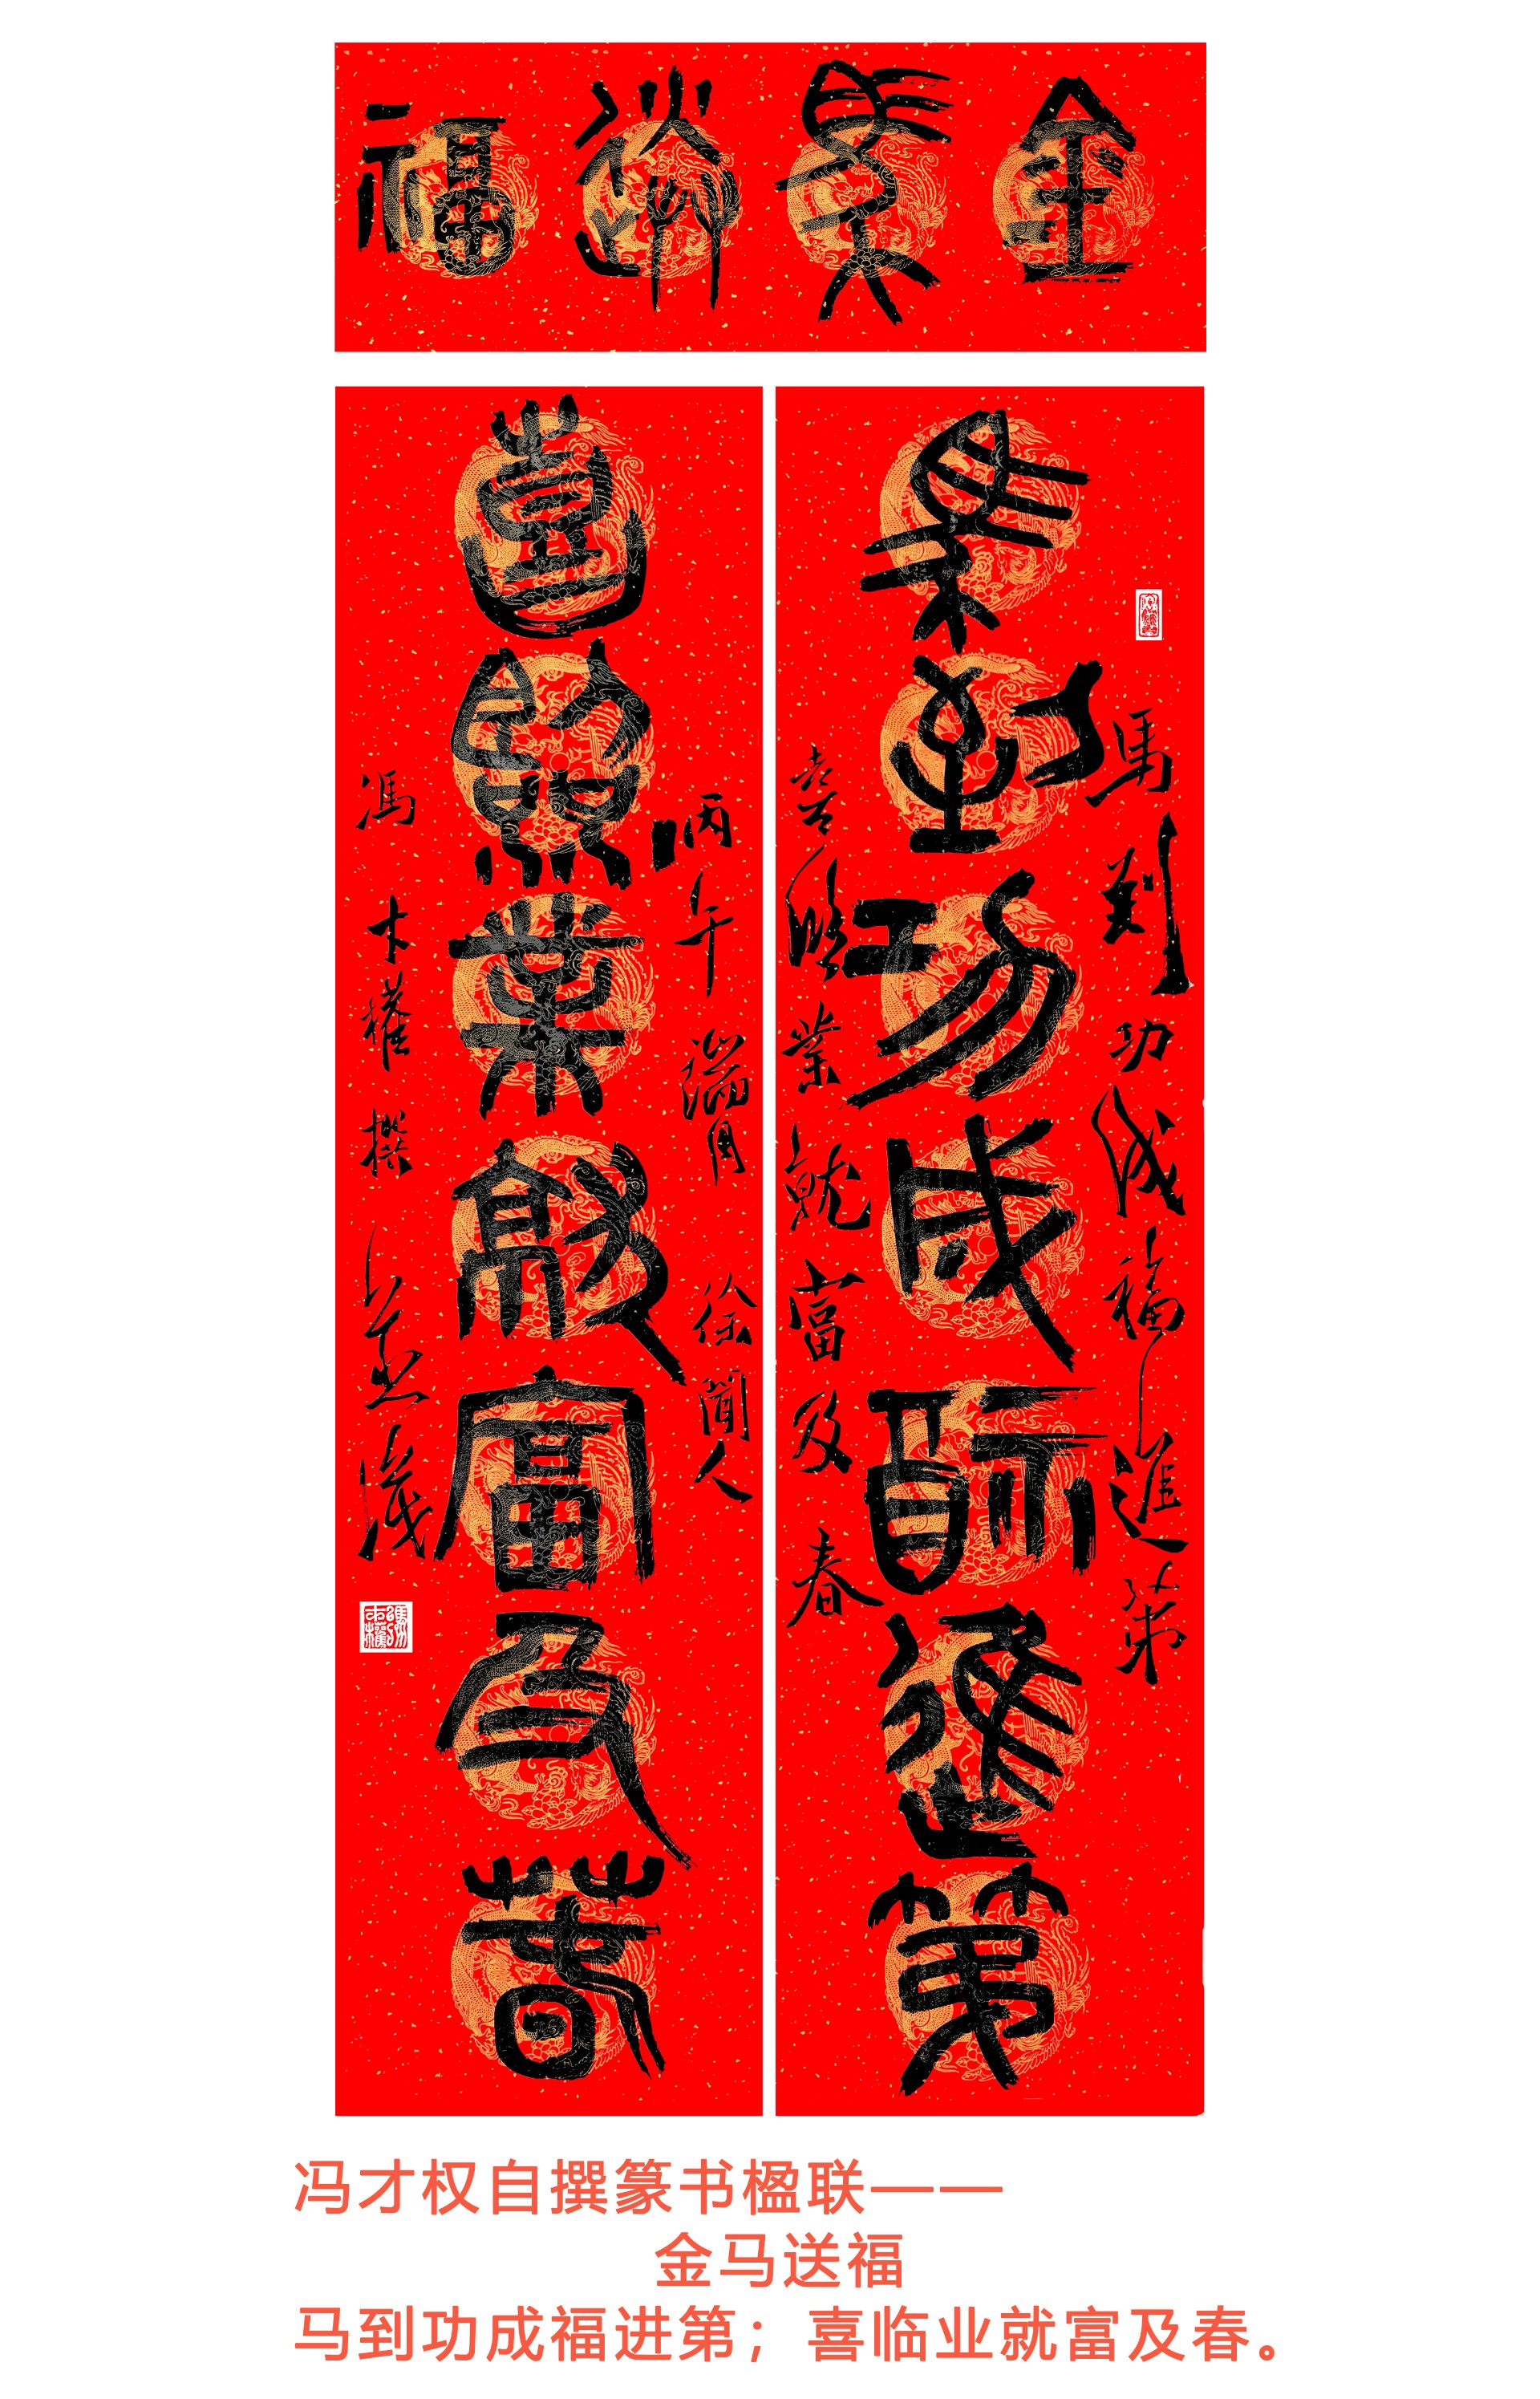 金馬送福
馬到功成福進第
馬到功成福進第
喜臨業就富及春
喜臨業就富及春
丙午端月
徐聞人
馮才權撰並識
馮才權
冯才权自撰篆书楹联——
金马送福
马到功成福进第；喜临业就富及春。